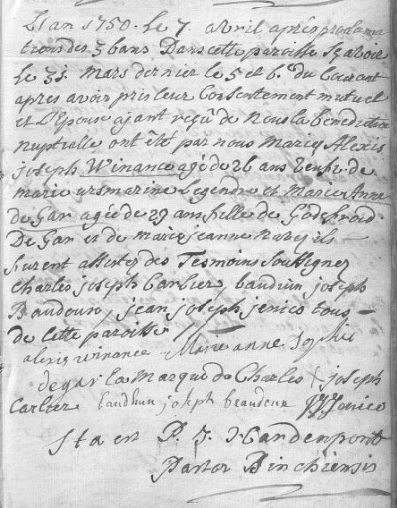 L'an 1750. le 7. avril après proclama
tions des 3 bans Dans cette paroisse Sçavoir
le 31. mars dernier le 5 et 6e du Courant
apres avoir pris leur Consentement mutuel
et L'Epouse ajant reçu de nous la bénédiction
nuptielle ont été par nous mariez Alexis
joseph Winance agé de 26 ans veuf de
marie ursmarine Legendre et Marie Anne
de Gar agée de 29 ans fille de Godefroid
De Gar et de marie jeanne ils
furent assistez des Temoins Soussignez
Charles joseph Carlier, bauduin joseph
Bauduin, jean joseph jenico tous
de cette paroisse
alexis winance Marie anne Sophie
degar la Marque de Charles X joseph
Carlier bauduin joseph beauduin JJ Jenico
Ita est P. J. Vandenpont
Pastor Binchiensis